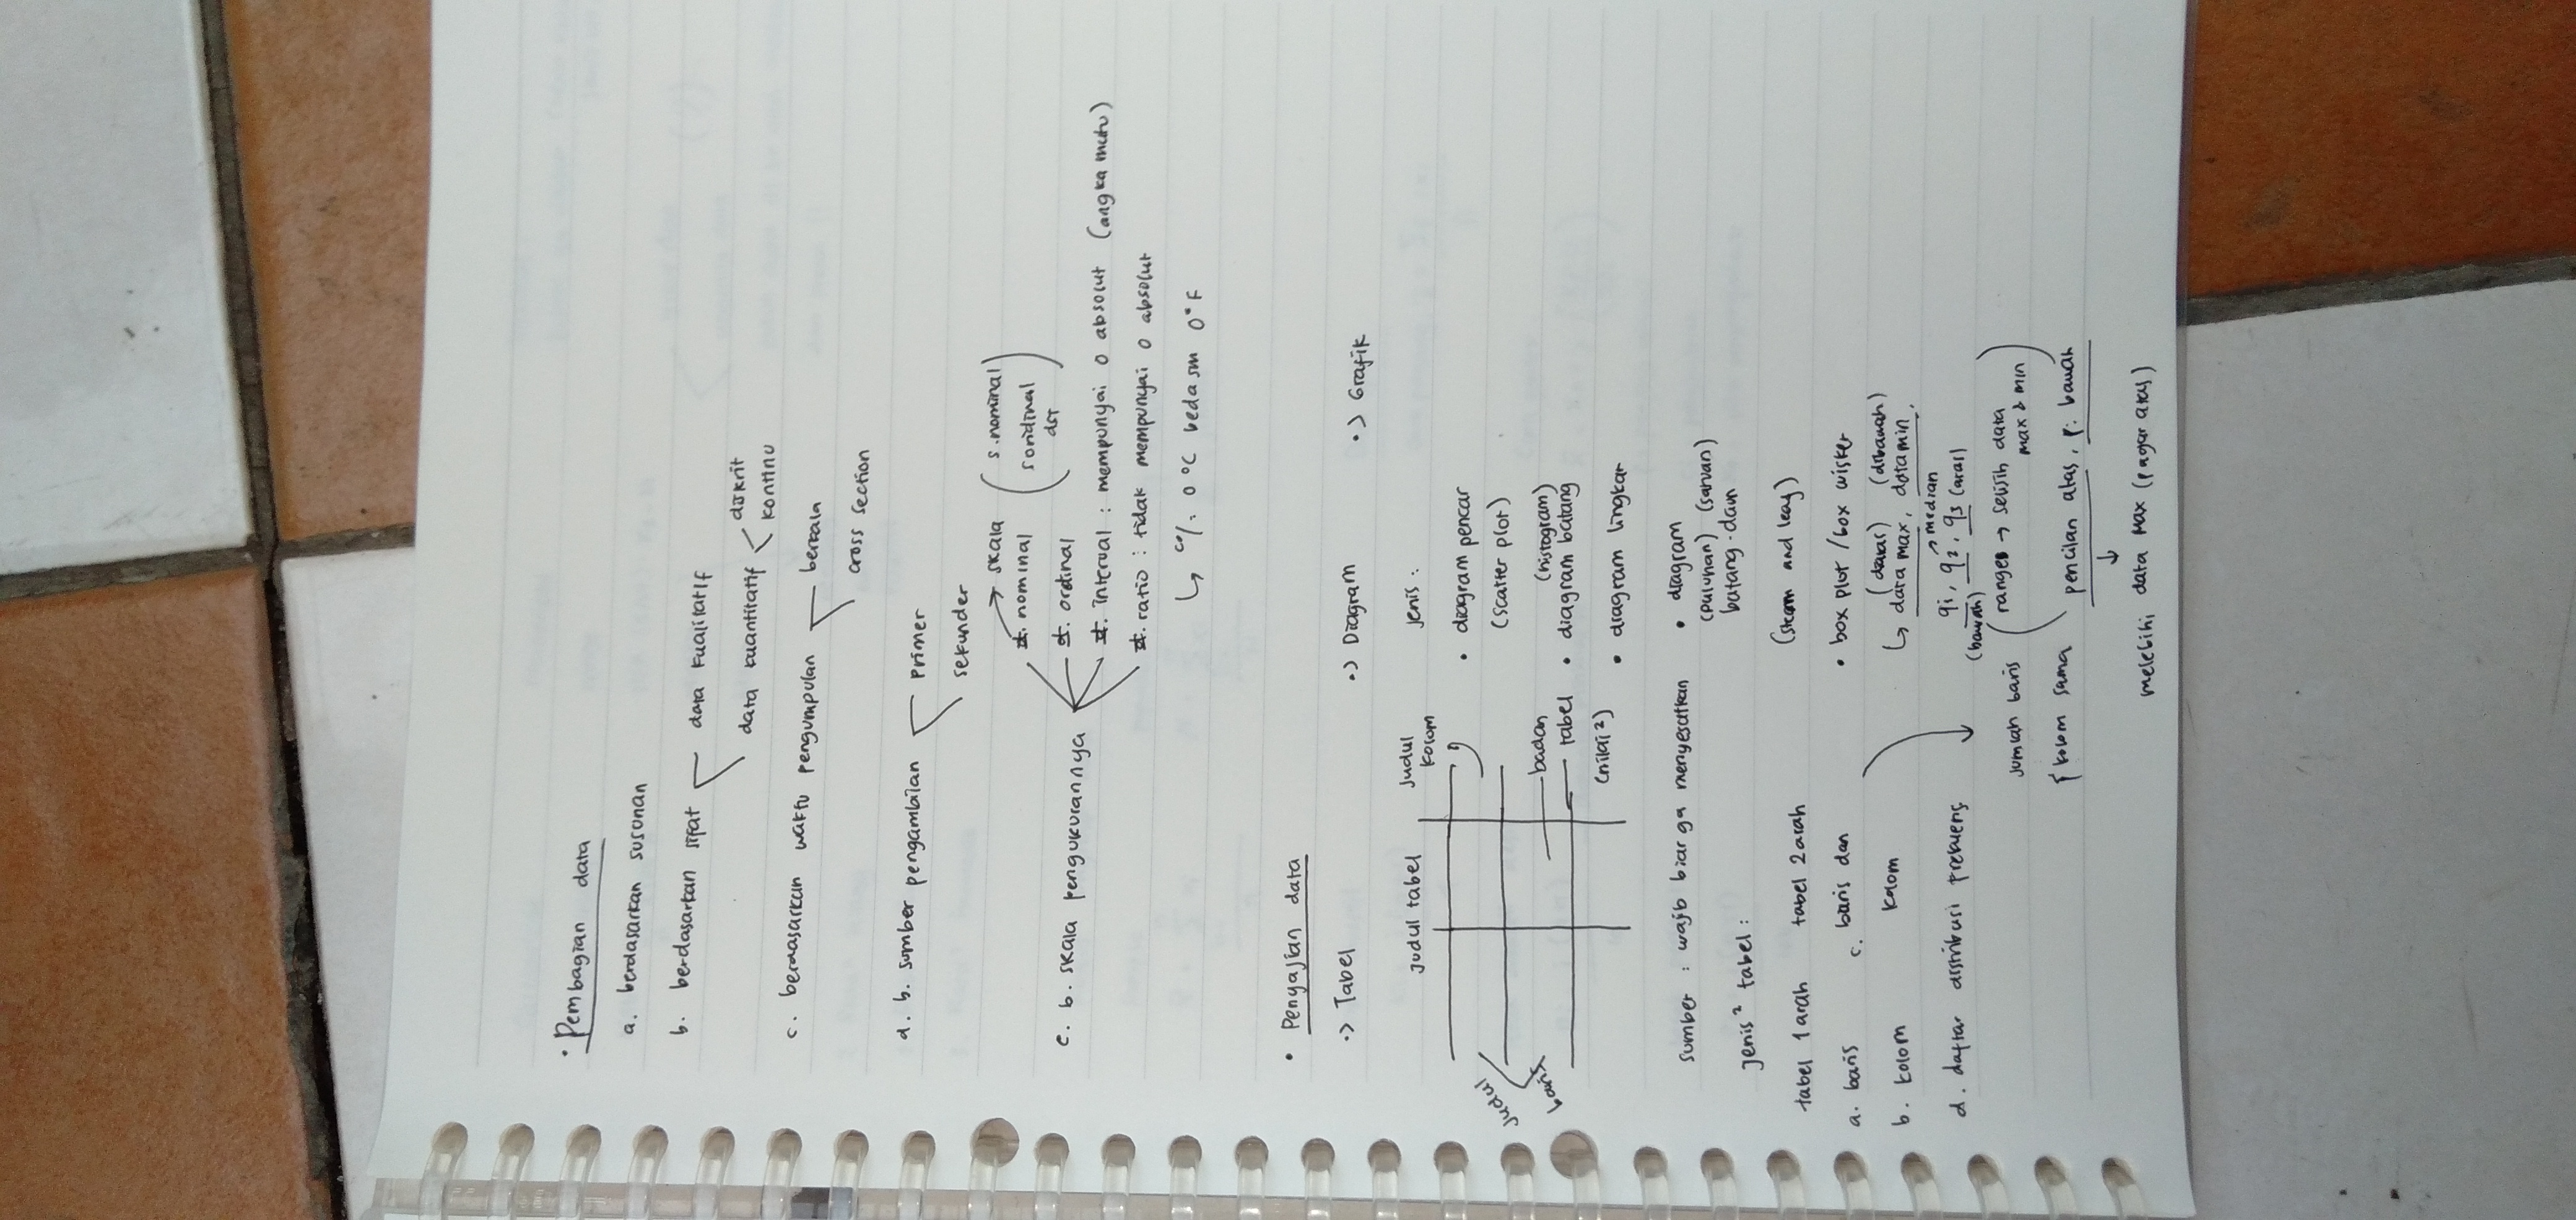 • Pembagian data
a. berdasarkan susunan
b. berdasarkan sifat
data kualitatif
data kuantitatif
diskrit
kontinu
c. berdasarkan waktu pengumpulan
berkala
cross section
d. b. sumber pengambilan
primer
sekunder
e. b. skala pengukurannya
→ skala
nominal
(s. nominal
s ordinal
dst)
ordinal
interval : mempunyai 0 absolut (angka mutu)
ratio : tidak mempunyai 0 absolut
0 °C beda sm 0°F
• Penyajian data
•> Tabel
Judul tabel
Judul
kolom
Judul
baris
badan
tabel
(nilai²)
sumber : wajib biar ga menyesatkan
Jenis² tabel :
tabel 1 arah
tabel 2 arah
a. baris
c. baris dan
kolom
b. kolom
d. daftar distribusi frekuensi
jumlah baris
& kolom sama
•> Diagram
jenis :
• diagram pencar
(scatter plot)
(histogram)
• diagram batang
• diagram lingkar
• diagram
(puluhan) (satuan)
batang-daun
(steam and leaf)
• box plot / box wisker
(diatas) (dibawah)
data max, data min,
→ median
q1, q2, q3 (atas)
(bawah)
(range → selisih data
max & min)
pencilan atas, p. bawah
↓
melebihi data max (pagar atas)
•> Grafik